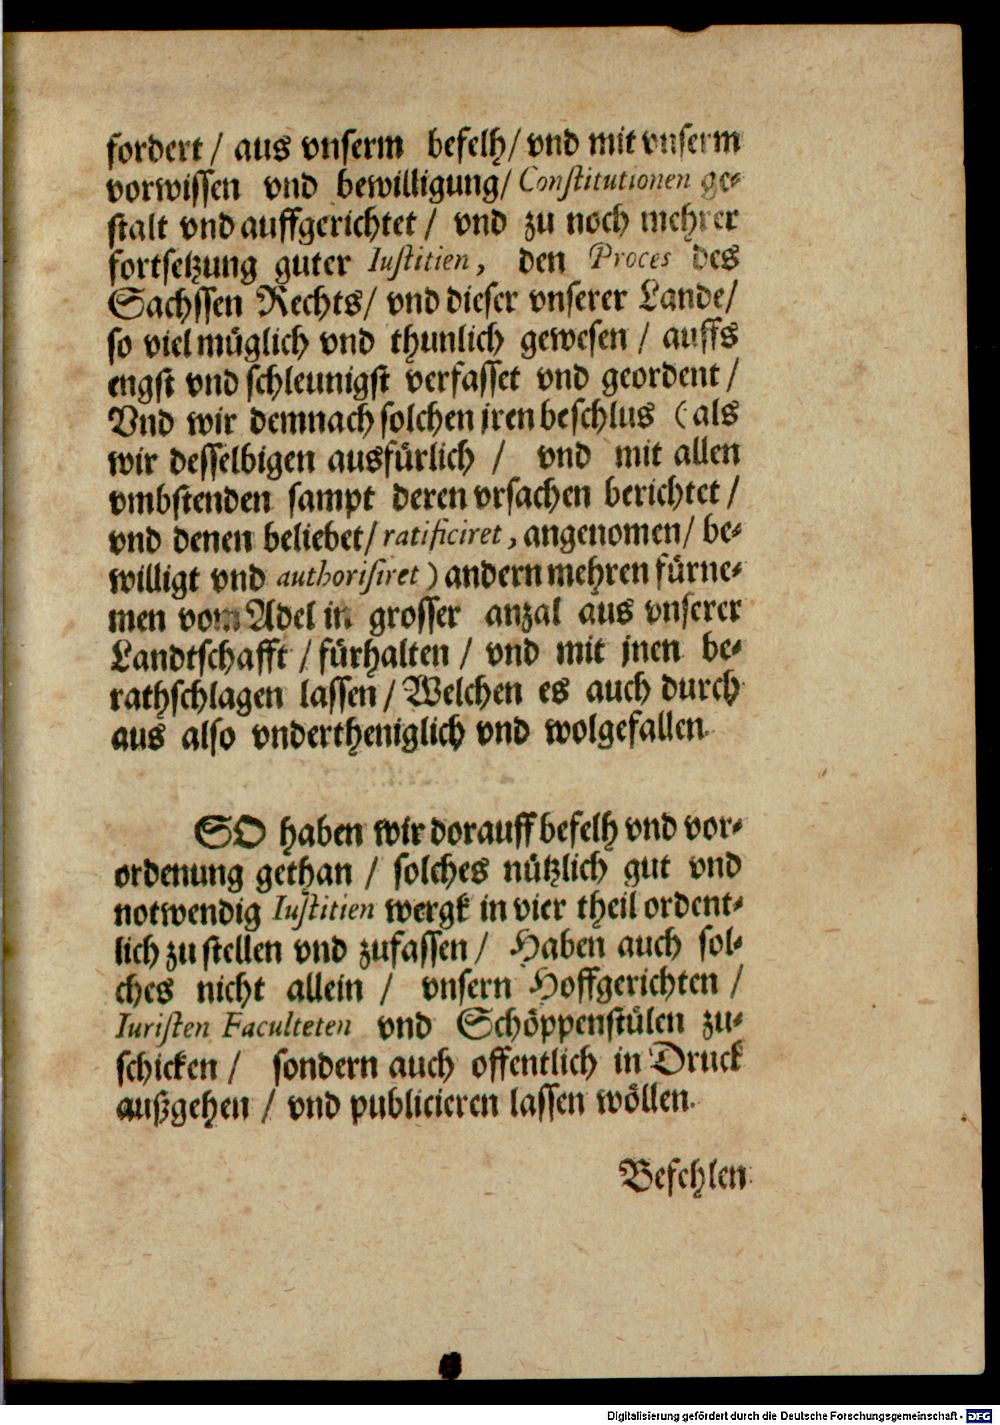 fordert / aus vnserm befelh / vnd mit vnserm
vorwissen vnd bewilligung / Constitutionen ge-
stalt vnd auffgerichtet / vnd zu noch mehrer
fortsetzung guter Iustitien, den Proces des
Sachssen Rechts / vnd dieser vnserer Lande /
so viel müglich vnd thunlich gewesen / auffs
engst vnd schleunigst verfasset vnd geordent /
Vnd wir demnach solchen jren beschlus (als
wir desselbigen ausfürlich / vnd mit allen
vmbstenden sampt deren vrsachen berichtet /
vnd denen beliebet / ratificiret, angenomen / be-
willigt vnd authorisiret) andern mehren fürne-
men vom Adel in grosser anzal aus vnserer
Landtschafft / fürhalten / vnd mit jnen be-
rathschlagen lassen / Welchen es auch durch
aus also vndertheniglich vnd wolgefallen.
SO haben wir dorauff befelh vnd vor-
ordenung gethan / solches nützlich gut vnd
notwendig Iustitien wergk in vier theil ordent-
lich zu stellen vnd zufassen / Haben auch sol-
ches nicht allein / vnsern Hoffgerichten /
Iuristen Faculteten vnd Schöppenstülen zu-
schicken / sondern auch offentlich in Druck
außgehen / vnd publicieren lassen wöllen.
Befehlen
Digitalisierung gefördert durch die Deutsche Forschungsgemeinschaft - DFG